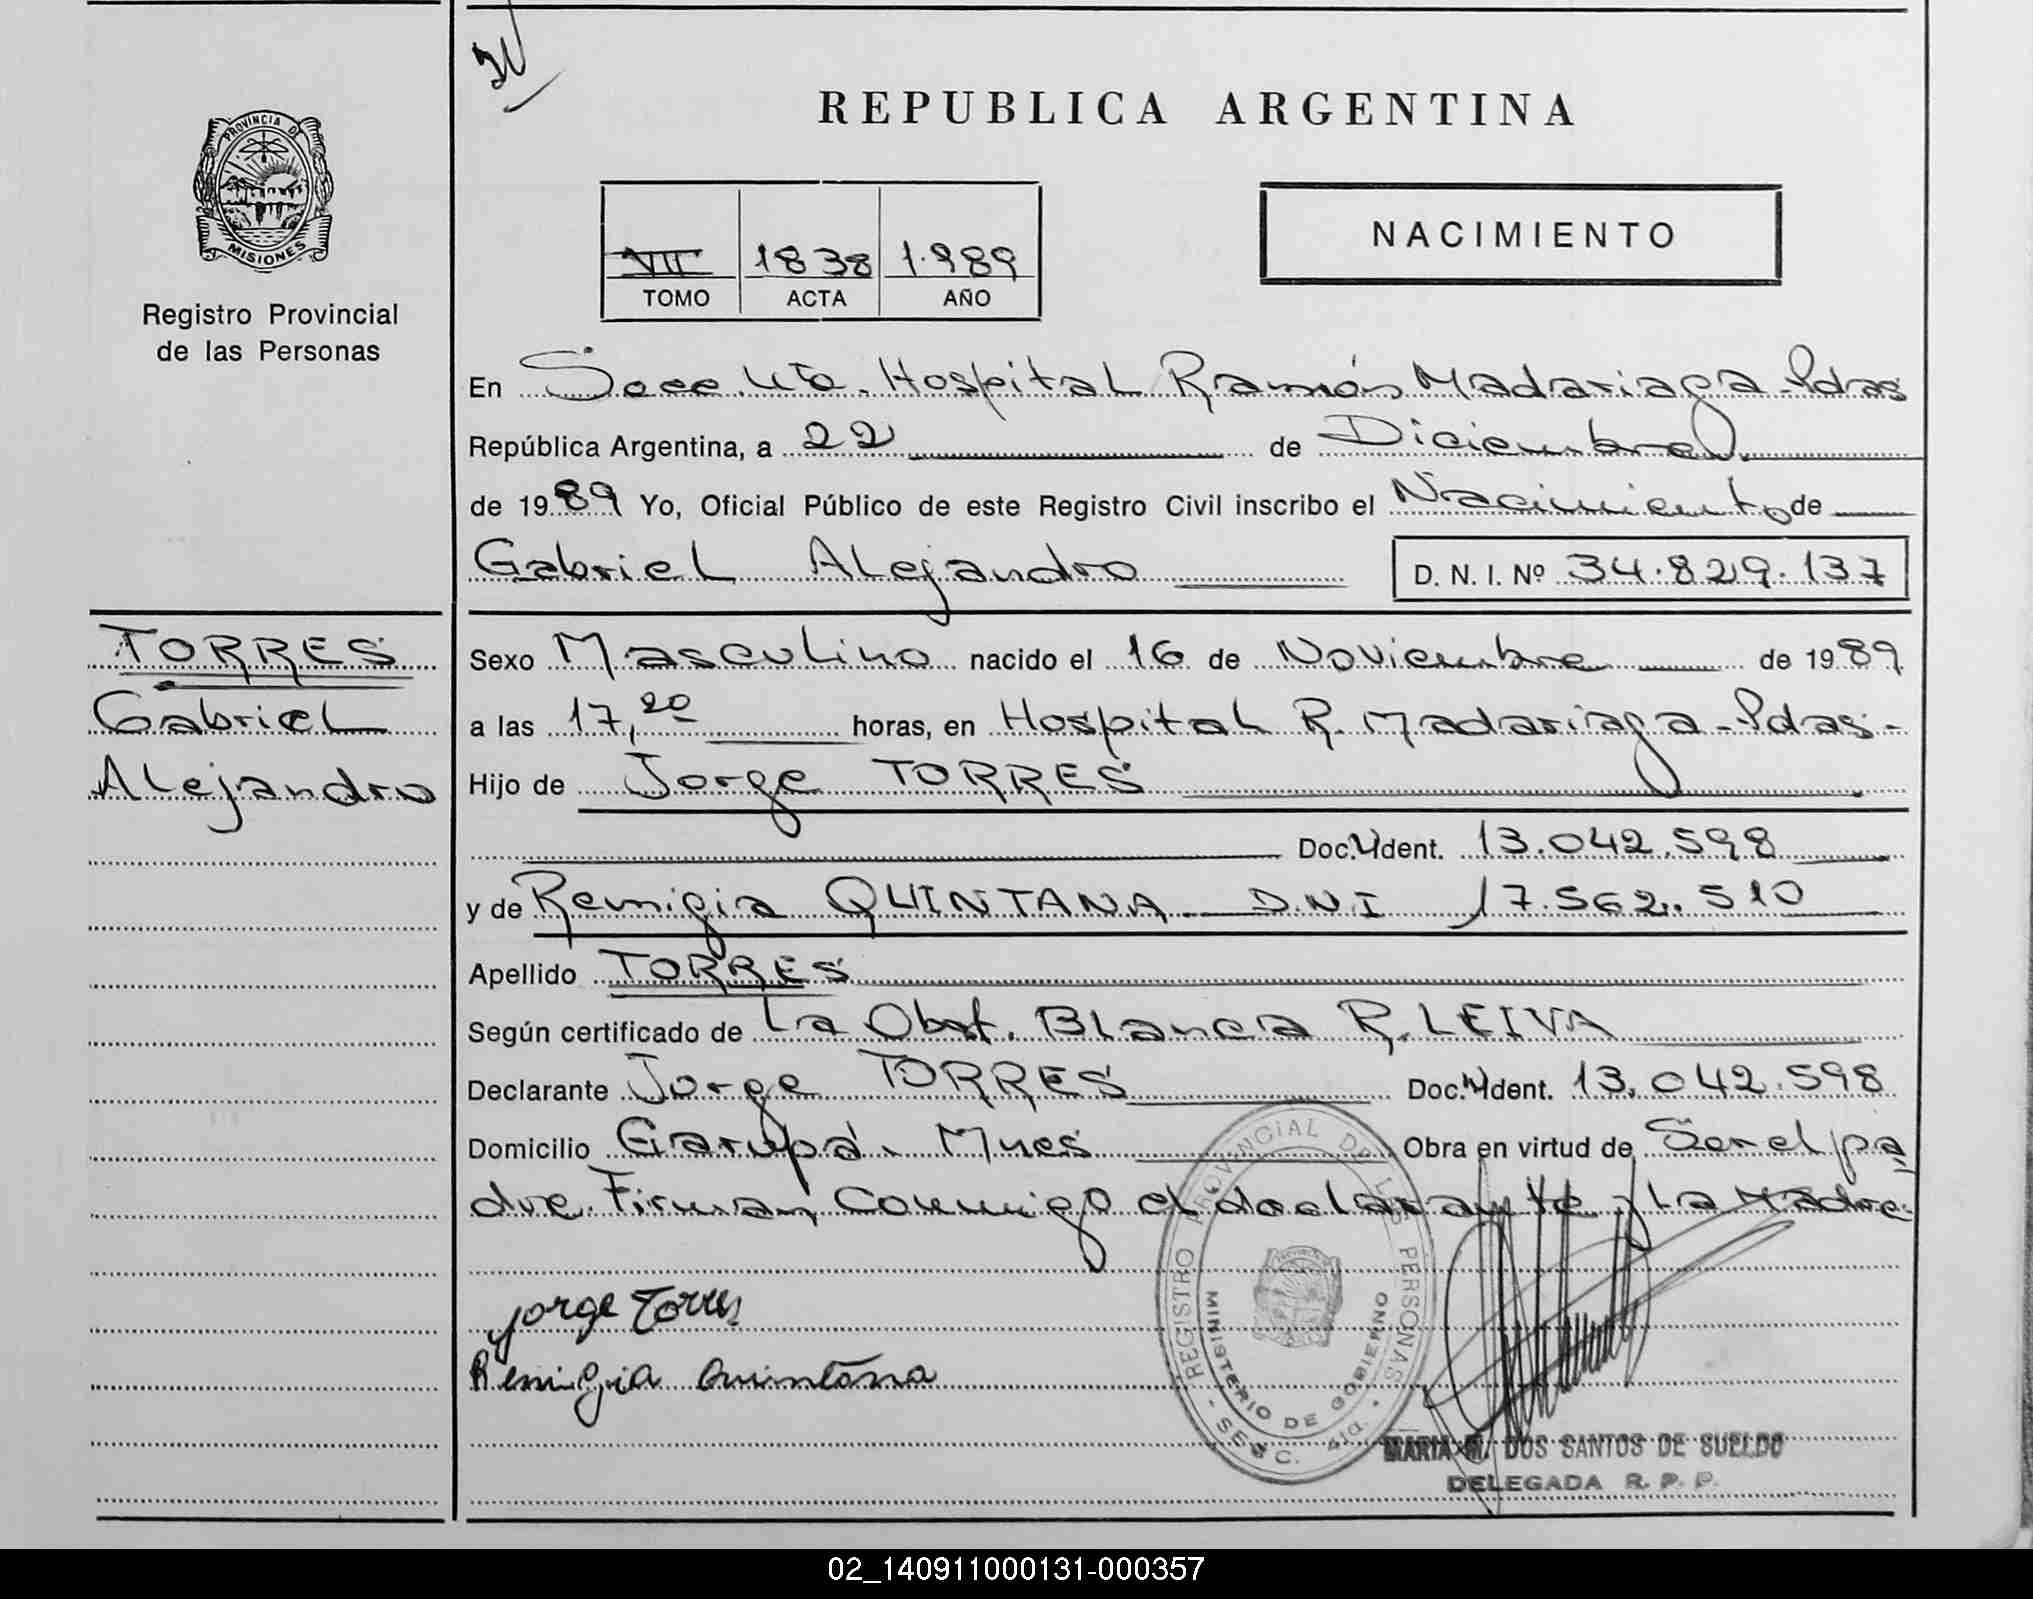 REPUBLICA ARGENTINA
PROVINCIA DE
MISIONES
Registro Provincial
de las Personas
VII 1838 1.989
TOMO ACTA AÑO
NACIMIENTO
En Secc. 4ta. Hospital Ramón Madariaga - Pdas
República Argentina, a 22 de Diciembre
de 1989 Yo, Oficial Público de este Registro Civil inscribo el Nacimiento de
Gabriel Alejandro D. N. I. Nº 34.829.137
TORRES
Gabriel
Alejandro
Sexo Masculino nacido el 16 de Noviembre de 1989
a las 17,20 horas, en Hospital R. Madariaga - Pdas -
Hijo de Jorge TORRES
Doc. Ident. 13.042.598
y de Remigia QUINTANA D.N.I 17.562.510
Apellido TORRES
Según certificado de La Obst. Blanca R. LEIVA
Declarante Jorge TORRES Doc. Ident. 13.042.598
Domicilio Garupá. Mnes Obra en virtud de Ser el pa
dre. Firman Conmigo el declarante y La Madre.
Jorge Torres
Remigia Quintana
REGISTRO PROVINCIAL DE LAS PERSONAS
MINISTERIO DE GOBIERNO
SECC. 4ta.
MARIA M. DOS SANTOS DE SUELDO
DELEGADA R. P. P.
02_140911000131-000357